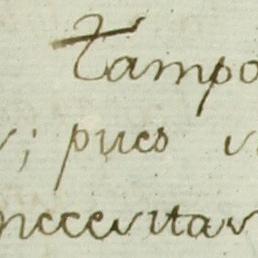 Tampo
; pues
necesitar